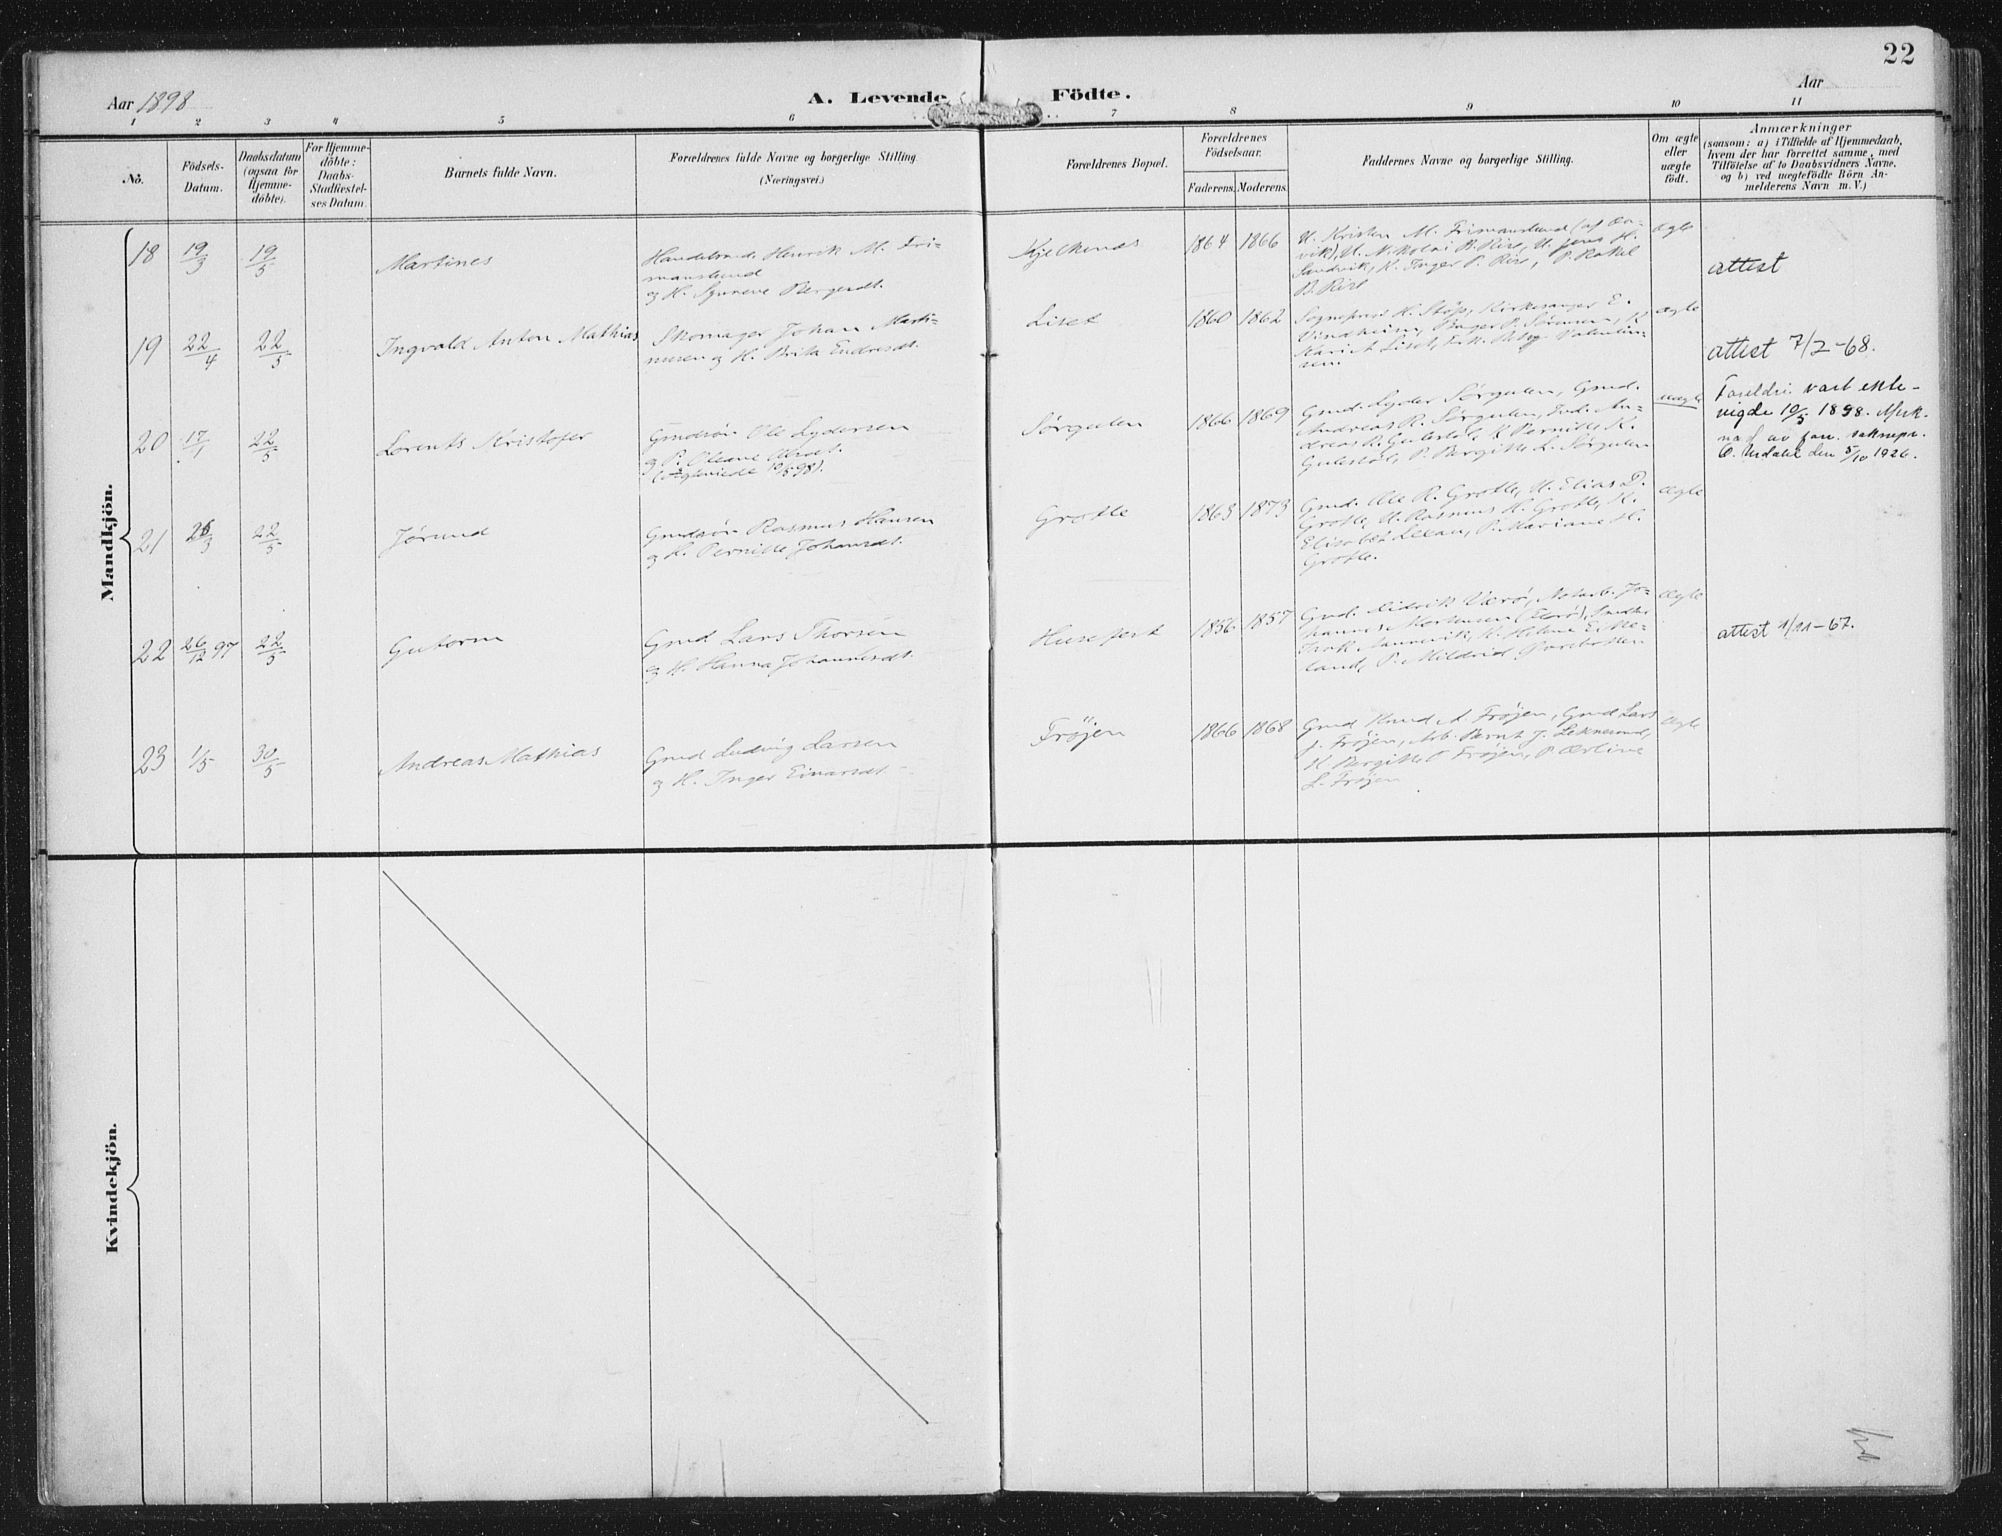 22
Aar 1898
A. Levende
Födte.
Aar
1 2 3 4 5 6 7 8 9 10 11
No.
Födsels-
Datum.
Daabsdatum
(ogsaa for
Hjemme-
döbte).
For Hjemme-
döbte:
Daabs-
Stadfæstel-
ses Datum.
Barnets fulde Navn.
Forældrenes fulde Navne og borgerlige Stilling.
(Næringsvei.)
Forældrenes Bopæl.
Forældrenes
Födselsaar.
Faderens. Moderens.
Faddernes Navne og borgerlige Stilling.
Om ægte
eller
uægte
födt.
Anmærkninger
(saasom: a) i Tilfælde af Hjemmedaab,
hvem der har forrettet samme, med
Tilföielse af to Daabsvidners Navne,
og b) ved uægtefödte Börn An-
melderens Navn m. V.)
Mandkjön.
18 19/3 19/5 Martines
Handelsmd. Henrik M. Fri-
manslund
og H. Synneve Bergesdt.
Kjelkenes 1864 1866
U. Kristen M. Frimanslund
B. Rise, U. Jens H.
Sandvik, K. Inger P. Rise, P. Rakel
B. Rise
ægte
attest
19 22/4 22/5 Ingvald Anton Mathias
Skomager Johan Marti-
nusen og H. Brita Endresdt.
Liset 1860 1862
Sogneprest H. Støp, Kirkesanger E.
Vindheim, Bager P. Sørensen,
Kari A. Liset,
ægte
attest 7/2-68.
20 17/1 22/5 Lorents Kristofer
Gmdsön Ole Lydersen
og P. Oleave
(ægteviede 10/5 98).
Sørgulen 1866 1869
Gmd. Lyder Sørgulen, Gmd.
Andreas R. Sørgulen, An-
dreas R. Gulestøl, K. Pernille K.
Gulestøl, P. Bergitte L. Sørgulen
uægte
Foreldri vart ekte-
vigde 10/5 1898. Merk-
nad av fen. sokneprs.
den 5/10 1926.
21 26/3 22/5 Jørund
Gmdsön Rasmus Hansen
og H. Pernille Johansdt.
Grotle 1863 1873
Gmd. Ole R. Grotle, U. Elias D.
Grotle, U. Rasmus H. Grotle, K.
Elisabet P. Mariane H.
Grotle.
ægte
22 26/12 97 22/5 Gutorm
Gmd Lars Thorsen
og H. Hanna Johannesdt.
Husefest 1856 1857
Gmd. Didrik Værø, Jo-
hannes Mortensen
K. Helene Eike-
land, P. Mildrid
ægte
attest 1/11-67.
23 1/5 30/5 Andreas Mathias
Gmd Ludvig Larsen
og H. Inger Einarsdt
Fröjen 1866 1868
Gmd Knud A. Fröjen, Gmd Lars
J. Fröjen, Arb. Bernt J.
K. Bergitte Fröjen, P.
L. Fröjen
ægte
Kvindekjön.